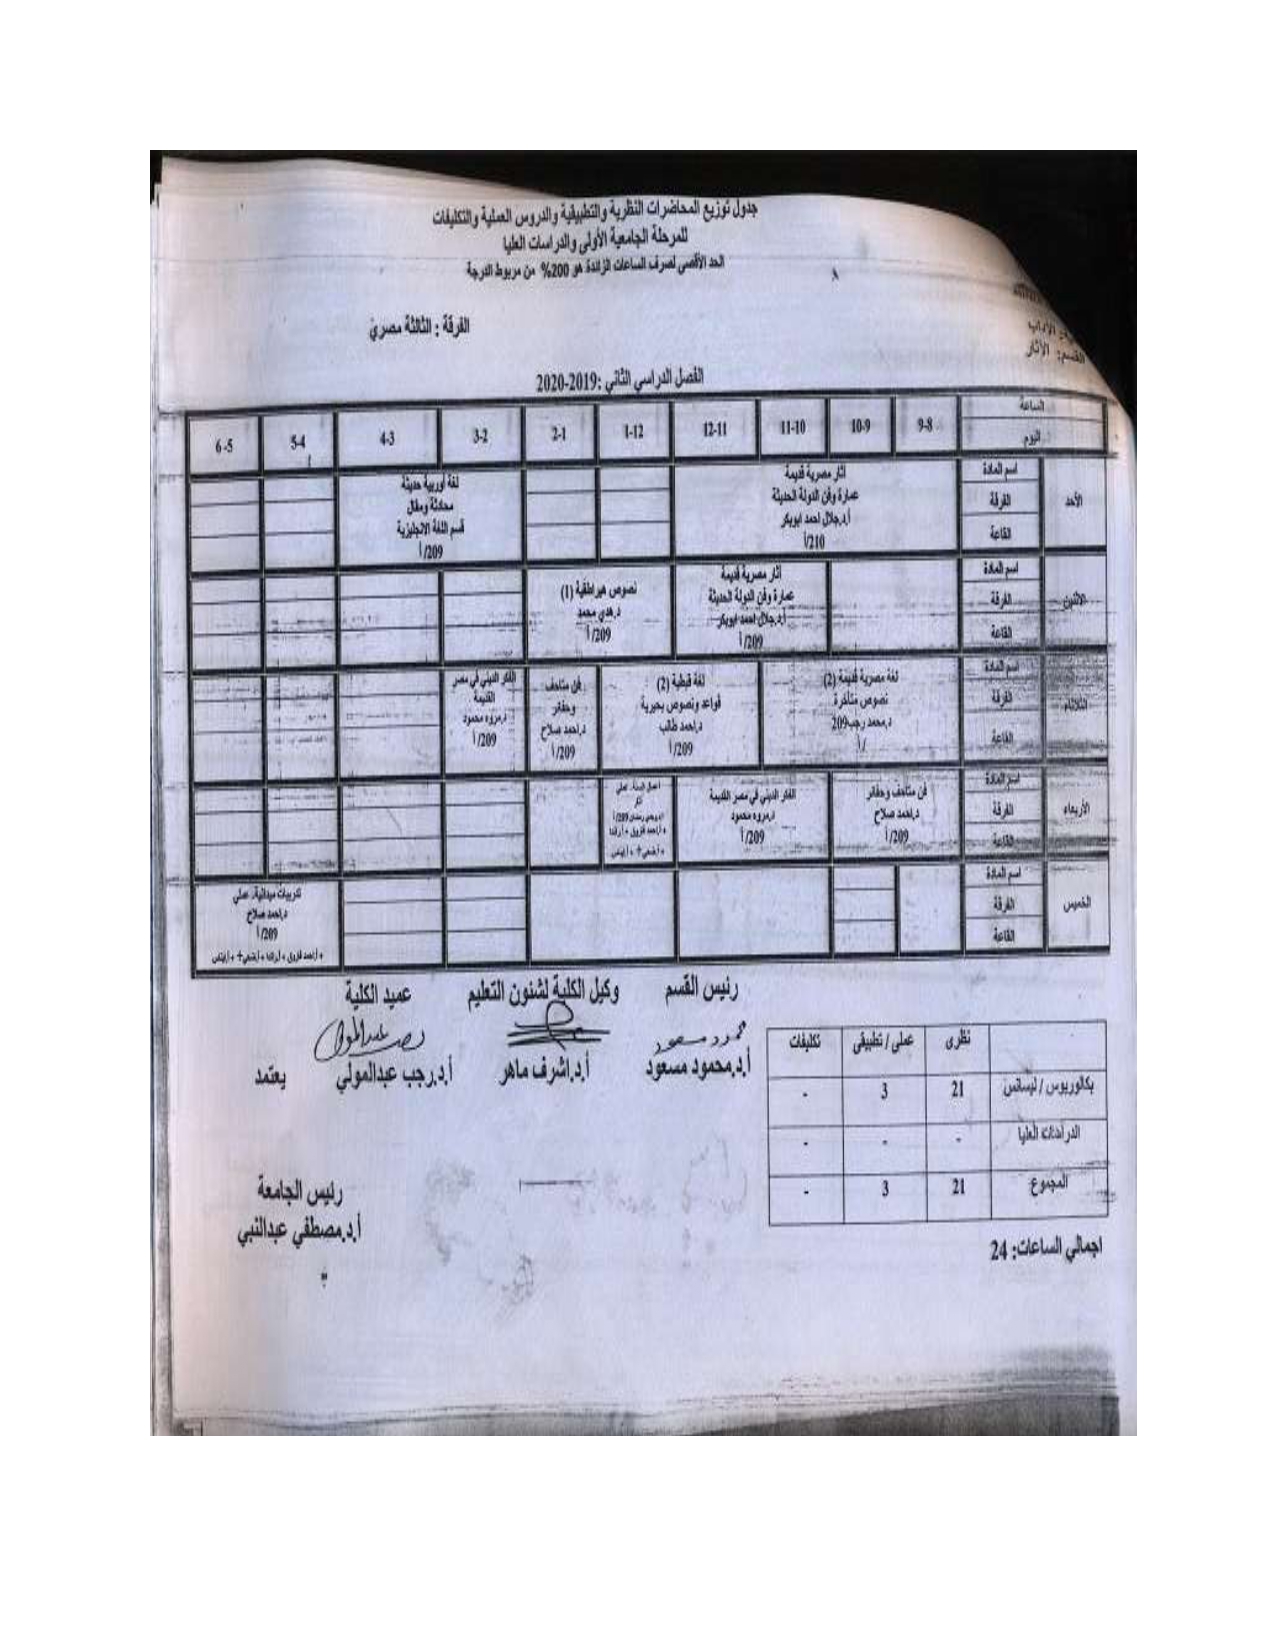 جدول توزيع المحاضرات النظرية والتطبيقية والدروس العملية والتكليفات
للمرحلة الجامعية الأولى والدراسات العليا
الحد الأقصى لصرف الساعات الزائدة هو 200% من مربوط الدرجة
الآداب
القسم: الآثار
الفرقة : الثالثة مصري
الفصل الدراسي الثاني :2019-2020
الساعة
اليوم
9-8
10-9
11-10
12-11
1-12
2-1
3-2
4-3
5-4
6-5
الأحد
اسم المادة
الفرقة
القاعة
آثار مصرية قديمة
عمارة وفن الدولة الحديثة
أ.د.جلال احمد ابوبكر
210/أ
لغة أوربية حديثة
محادثة ومقال
قسم اللغة الانجليزية
209/أ
الاثنين
اسم المادة
الفرقة
القاعة
آثار مصرية قديمة
عمارة وفن الدولة الحديثة
أ.د.جلال احمد ابوبكر
209/أ
نصوص هيراطقية (1)
د.هدي محمد
209/أ
الثلاثاء
اسم المادة
الفرقة
القاعة
لغة مصرية قديمة (2)
نصوص متأخرة
د.محمد رجب209
/أ
لغة قبطية (2)
قواعد ونصوص بحيرية
د.احمد طالب
209/أ
فن متاحف
وحفائر
د.احمد صلاح
209/أ
الفكر الديني في مصر
القديمة
د.مروه محمود
209/أ
الأربعاء
اسم المادة
الفرقة
القاعة
فن متاحف وحفائر
د.احمد صلاح
209/أ
الفكر الديني في مصر القديمة
د.مروه محمود
209/أ
أعمال السنة. عملي
209/أ
الخميس
اسم المادة
الفرقة
القاعة
تدريبات ميدانية. عملي
د.احمد صلاح
209/أ
رئيس القسم
وكيل الكلية لشئون التعليم
عميد الكلية
أ.د.محمود مسعود
أ.د.اشرف ماهر
أ.د.رجب عبدالمولي
يعتمد
نظرى
عملى / تطبيقى
تكليفات
بكالوريوس / ليسانس
21
3
-
الدراسات العليا
-
-
-
المجموع
21
3
-
اجمالي الساعات: 24
رئيس الجامعة
أ.د.مصطفي عبدالنبي